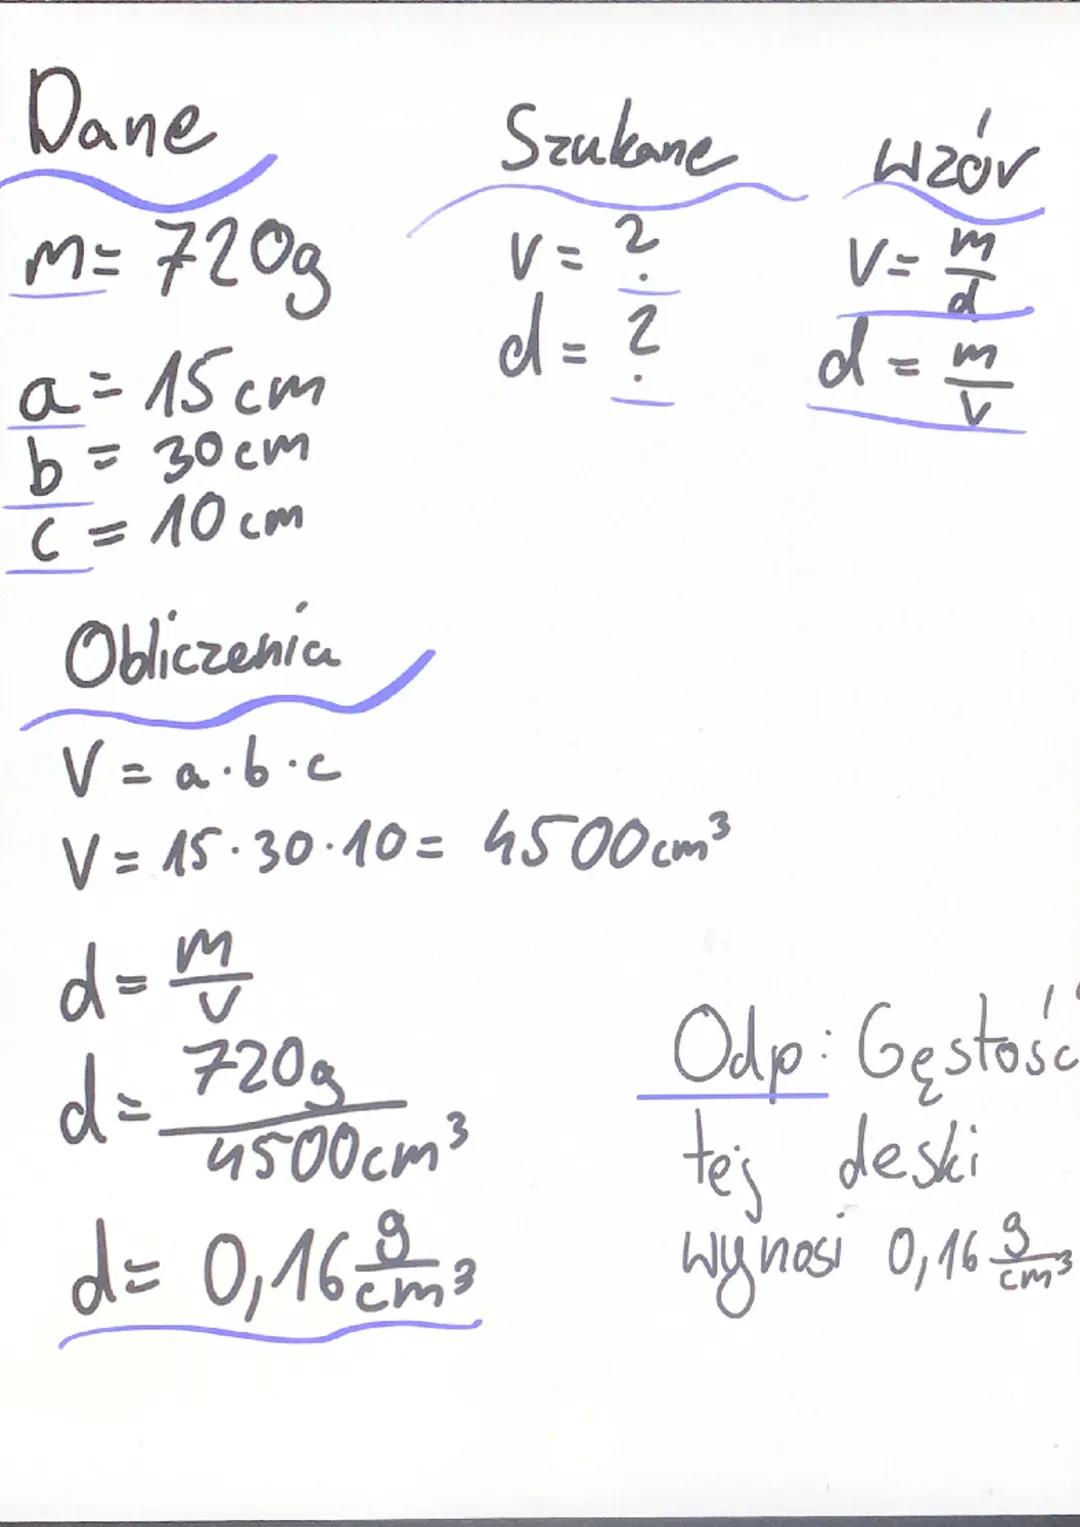 Dane
m = 720g
a = 15 cm
b = 30 cm
c = 10 cm
Szukane
V = ?
d = ?
wzór
V = m/d
d = m/V
Obliczenia
V = a · b · c
V = 15 · 30 · 10 = 4500 cm³
d = m/V
d = 720g/4500cm³
d = 0,16 g/cm³
Odp: Gęstość
tej deski
wynosi 0,16 g/cm³